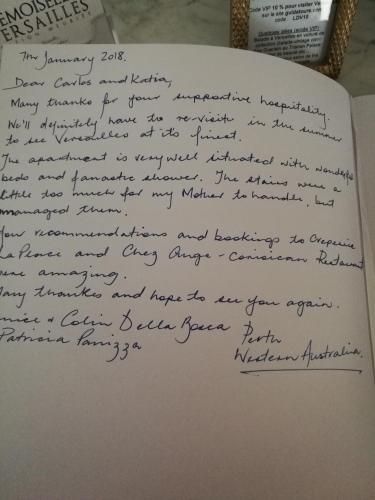 EMOISELLE
ERSAILLES
Code VIP 10 % pour visiter
sur le site
code : LDV18
7TH January 2018.
Dear Carlos and Katia,
Many thanks for your supportive hospitality.
We'll definitely have to re-visit in the summer
to see Versailles at its finest.
The apartment is very well situated with wonderful
beds and fantastic shower. The stairs were a
little too much for my Mother to handle, but
managed them.
our recommendations and bookings to Creperie
La Place and Chez Ange - Corsican Restaurant
were amazing.
Many thankes and hope to see you again.
& Colin Della Bosca
Patricia Panizza
Perth
Western Australia.